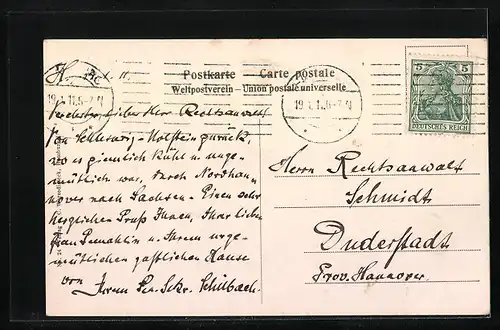 Postkarte Carte postale
Weltpostverein – Union postale universelle
5 5
DEUTSCHES REICH
19. 1. 11. 5-6 N
H. 11.
lieber Herr Rechtsanwalt!
Von Schleswig-Holstein zurück,
wo es ziemlich kühl u. unge-
mütlich war, durch Nordhan-
nover nach Sachsen. Einen sehr
herzlichen Gruß Ihnen, Ihrer lieben
Frau Gemahlin u. Ihrem unge-
mütlichen gastlichen Hause
von Ihrem Schilbach.
Herrn Rechtsanwalt
Schmidt
Duderstadt
Prov. Hannover.